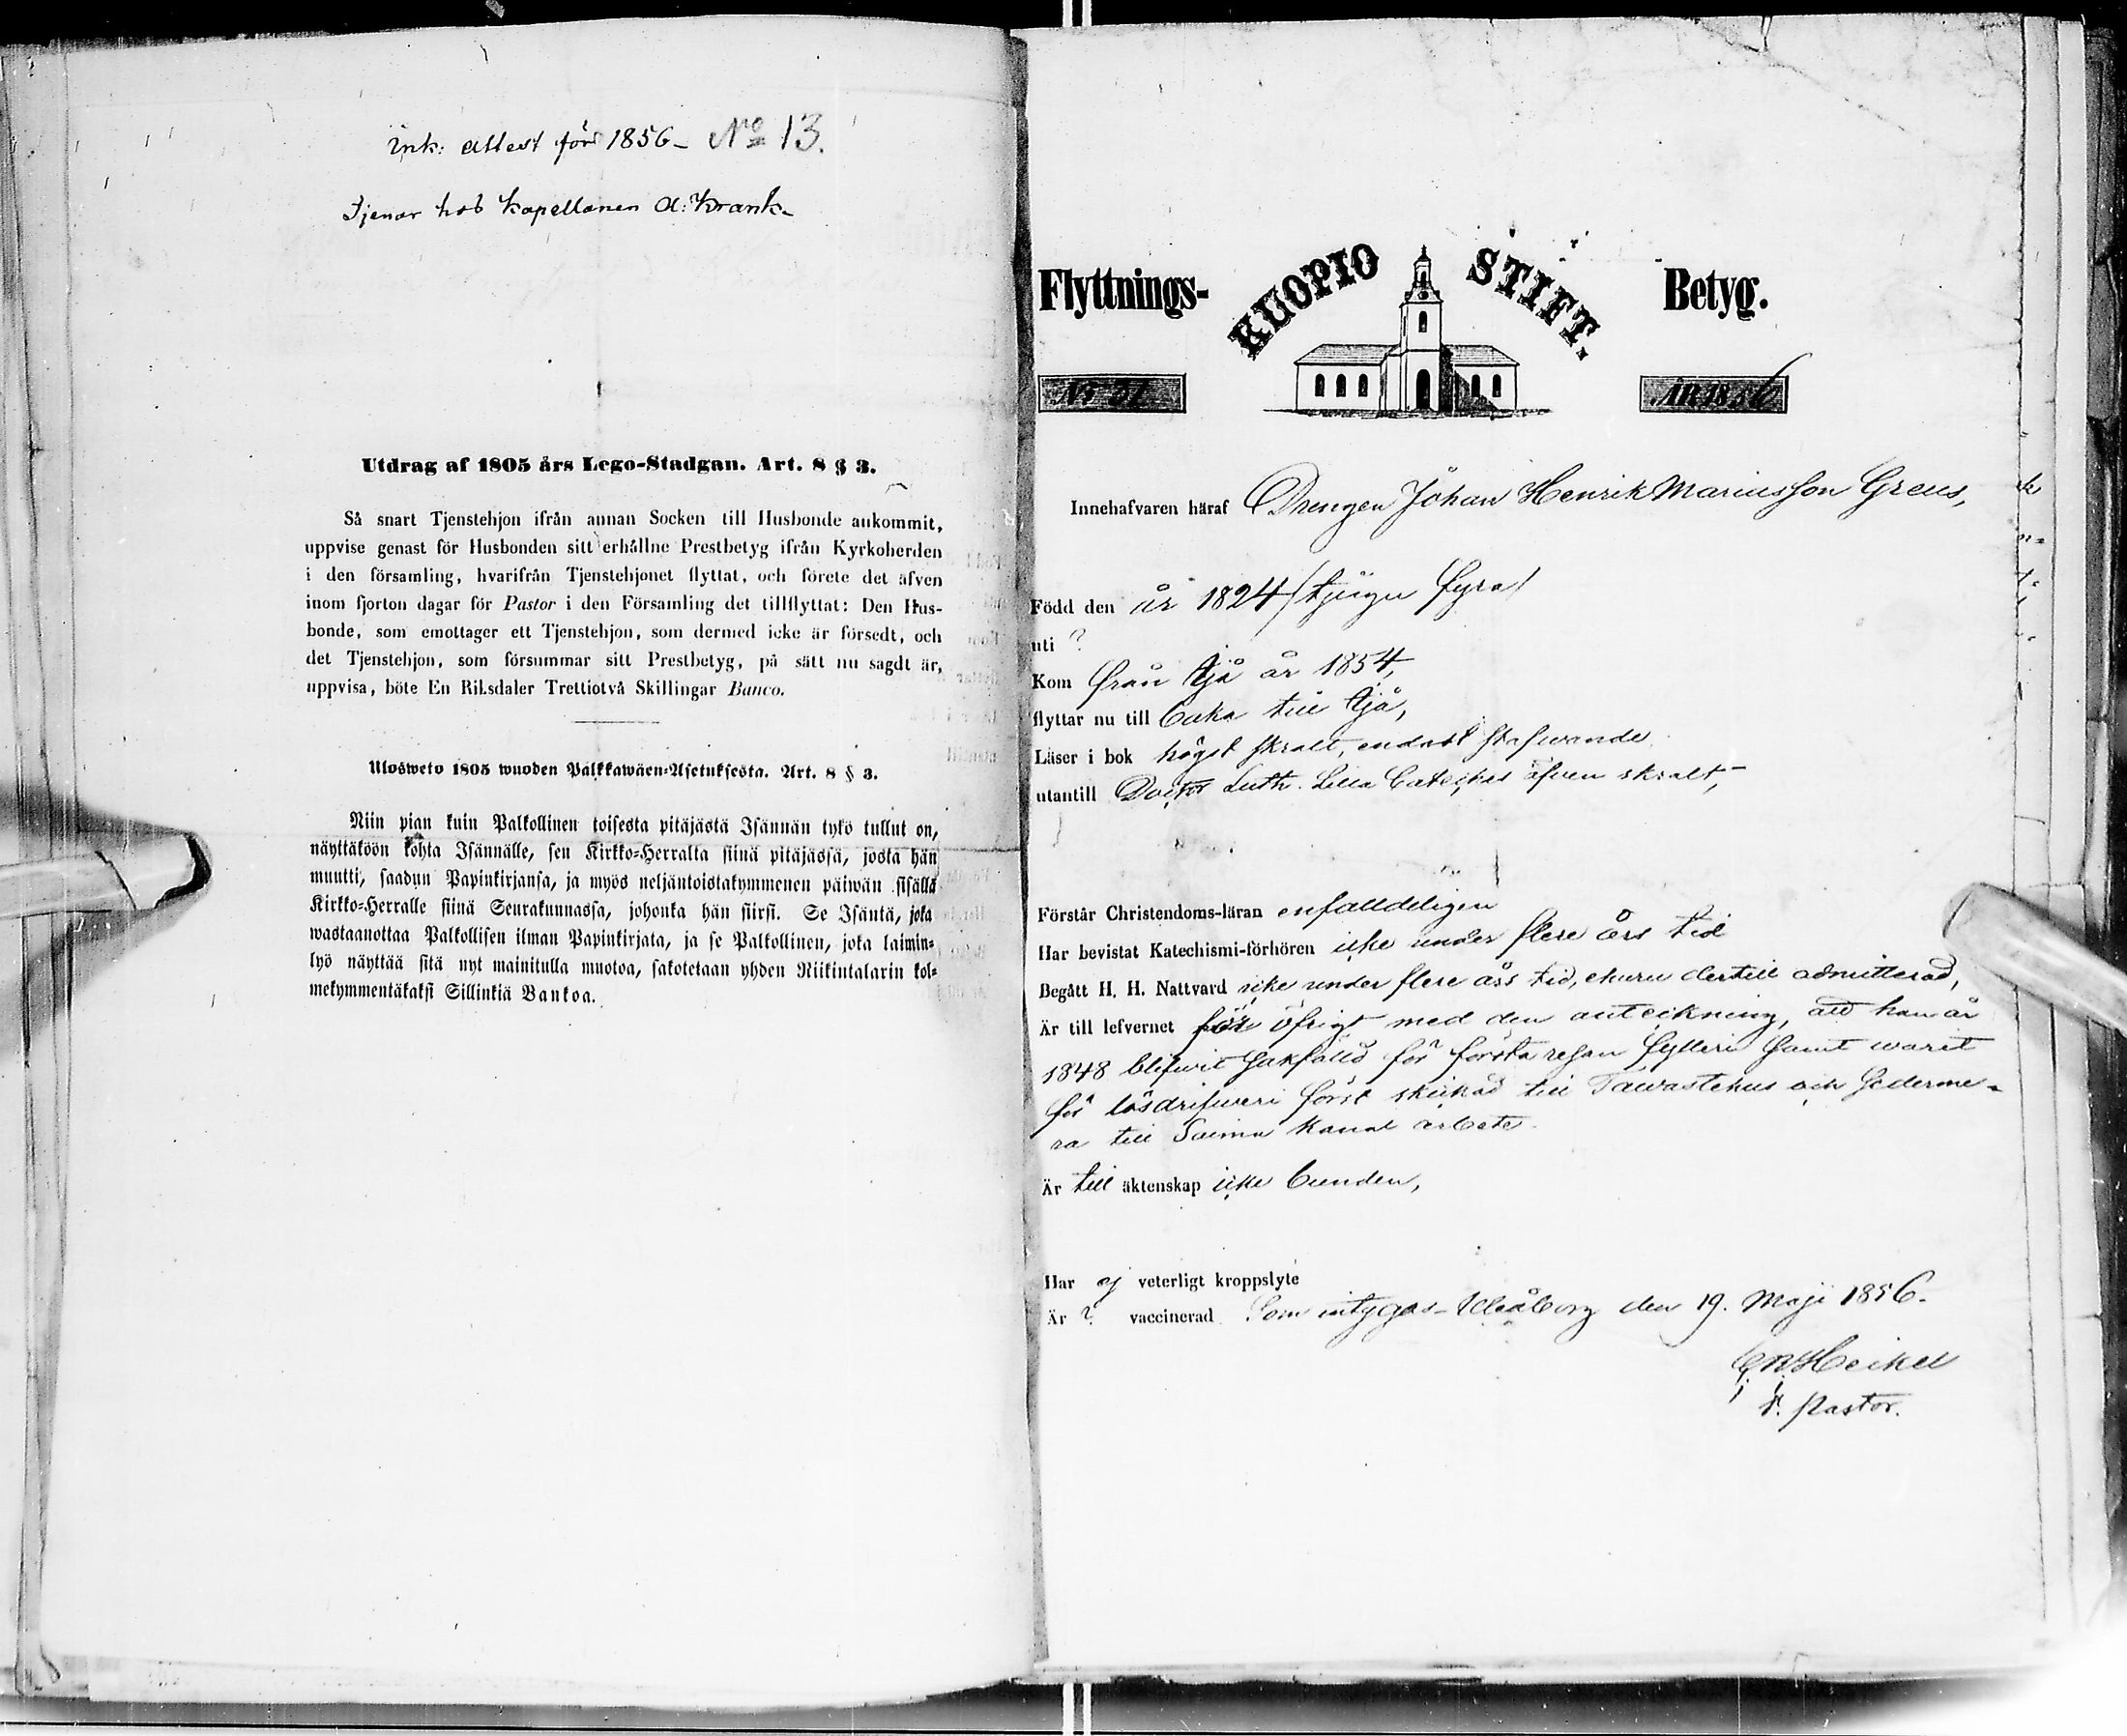 ink: attest för 1856 - No 13.
Tjenar hos Kapellanen A: Krank-
Utdrag af 1805 års Lego-Stadgan. Art. 8 § 3.
Så snart Tjenstehjon ifrån annan Socken till Husbonde ankommit,
uppvise genast för Husbonden sitt erhållne Prestbetyg ifrån Kyrkoherden
i den församling, hvarifrån Tjenstehjonet flyttat, och förete det äfven
inom fjorton dagar för Pastor i den Församling det tillflyttat: Den Hus-
bonde, som emottager ett Tjenstehjon, som dermed icke är försedt, och
det Tjenstehjon, som försummar sitt Prestbetyg, på sätt nu sagdt är,
uppvisa, böte En Riksdaler Trettiotvå Skillingar Banco.
Ulosweto 1805 wuoden Palkkawäen-Asetuksesta. Art. 8 § 3.
Niin pian kuin Palkollinen toisesta pitäjästä Isännän tykö tullut on,
näyttäköön kohta Isännälle, sen Kirkko-Herralta siinä pitäjässä, josta hän
muutti, saadun Papinkirjansa, ja myös neljäntoistakymmenen päiwän sisällä
Kirkko-Herralle siinä Seurakunnassa, johonka hän siirsi. Se Isäntä, joka
wastaanottaa Palkollisen ilman Papinkirjata, ja se Palkollinen, joka laimin-
lyö näyttää sitä nyt mainitulla muotoa, sakotetaan yhden Riikintalarin kol-
mekymmentäkaksi Sillinkiä Bankoa.
Flyttnings- KUOPIO STIFT. Betyg.
No 31 ÅR 1856
Innehafvaren häraf Drengen Johan Henrik Mariusson Greus,
Född den år 1824 /tjugu fyra/
uti ?
Kom från Ijå år 1854,
flyttar nu till baka till Ijå,
Läser i bok högst skralt, endast stafwande
utantill Doctor Luth. Lilla Cateches äfven skralt,
Förstår Christendoms-läran enfalldeligen
Har bevistat Katechismi-förhören icke under flere års tid
Begått H. H. Nattvard icke under flere års tid, ehuru dertill admitterad,
Är till lefvernet för öfrigt med den anteckning, att han år
1848 blifwit sakfälld för första resan fylleri samt warit
för lösdrifweri först skickad till Tawastehus och sederme-
ra till Saima Kanal arbete.
Är till äktenskap icke bunden,
Har ej veterligt kroppslyte
Är ? vaccinerad Som intygas - Uleåborg den 19. Maji 1856.
Heikel
Pastor.